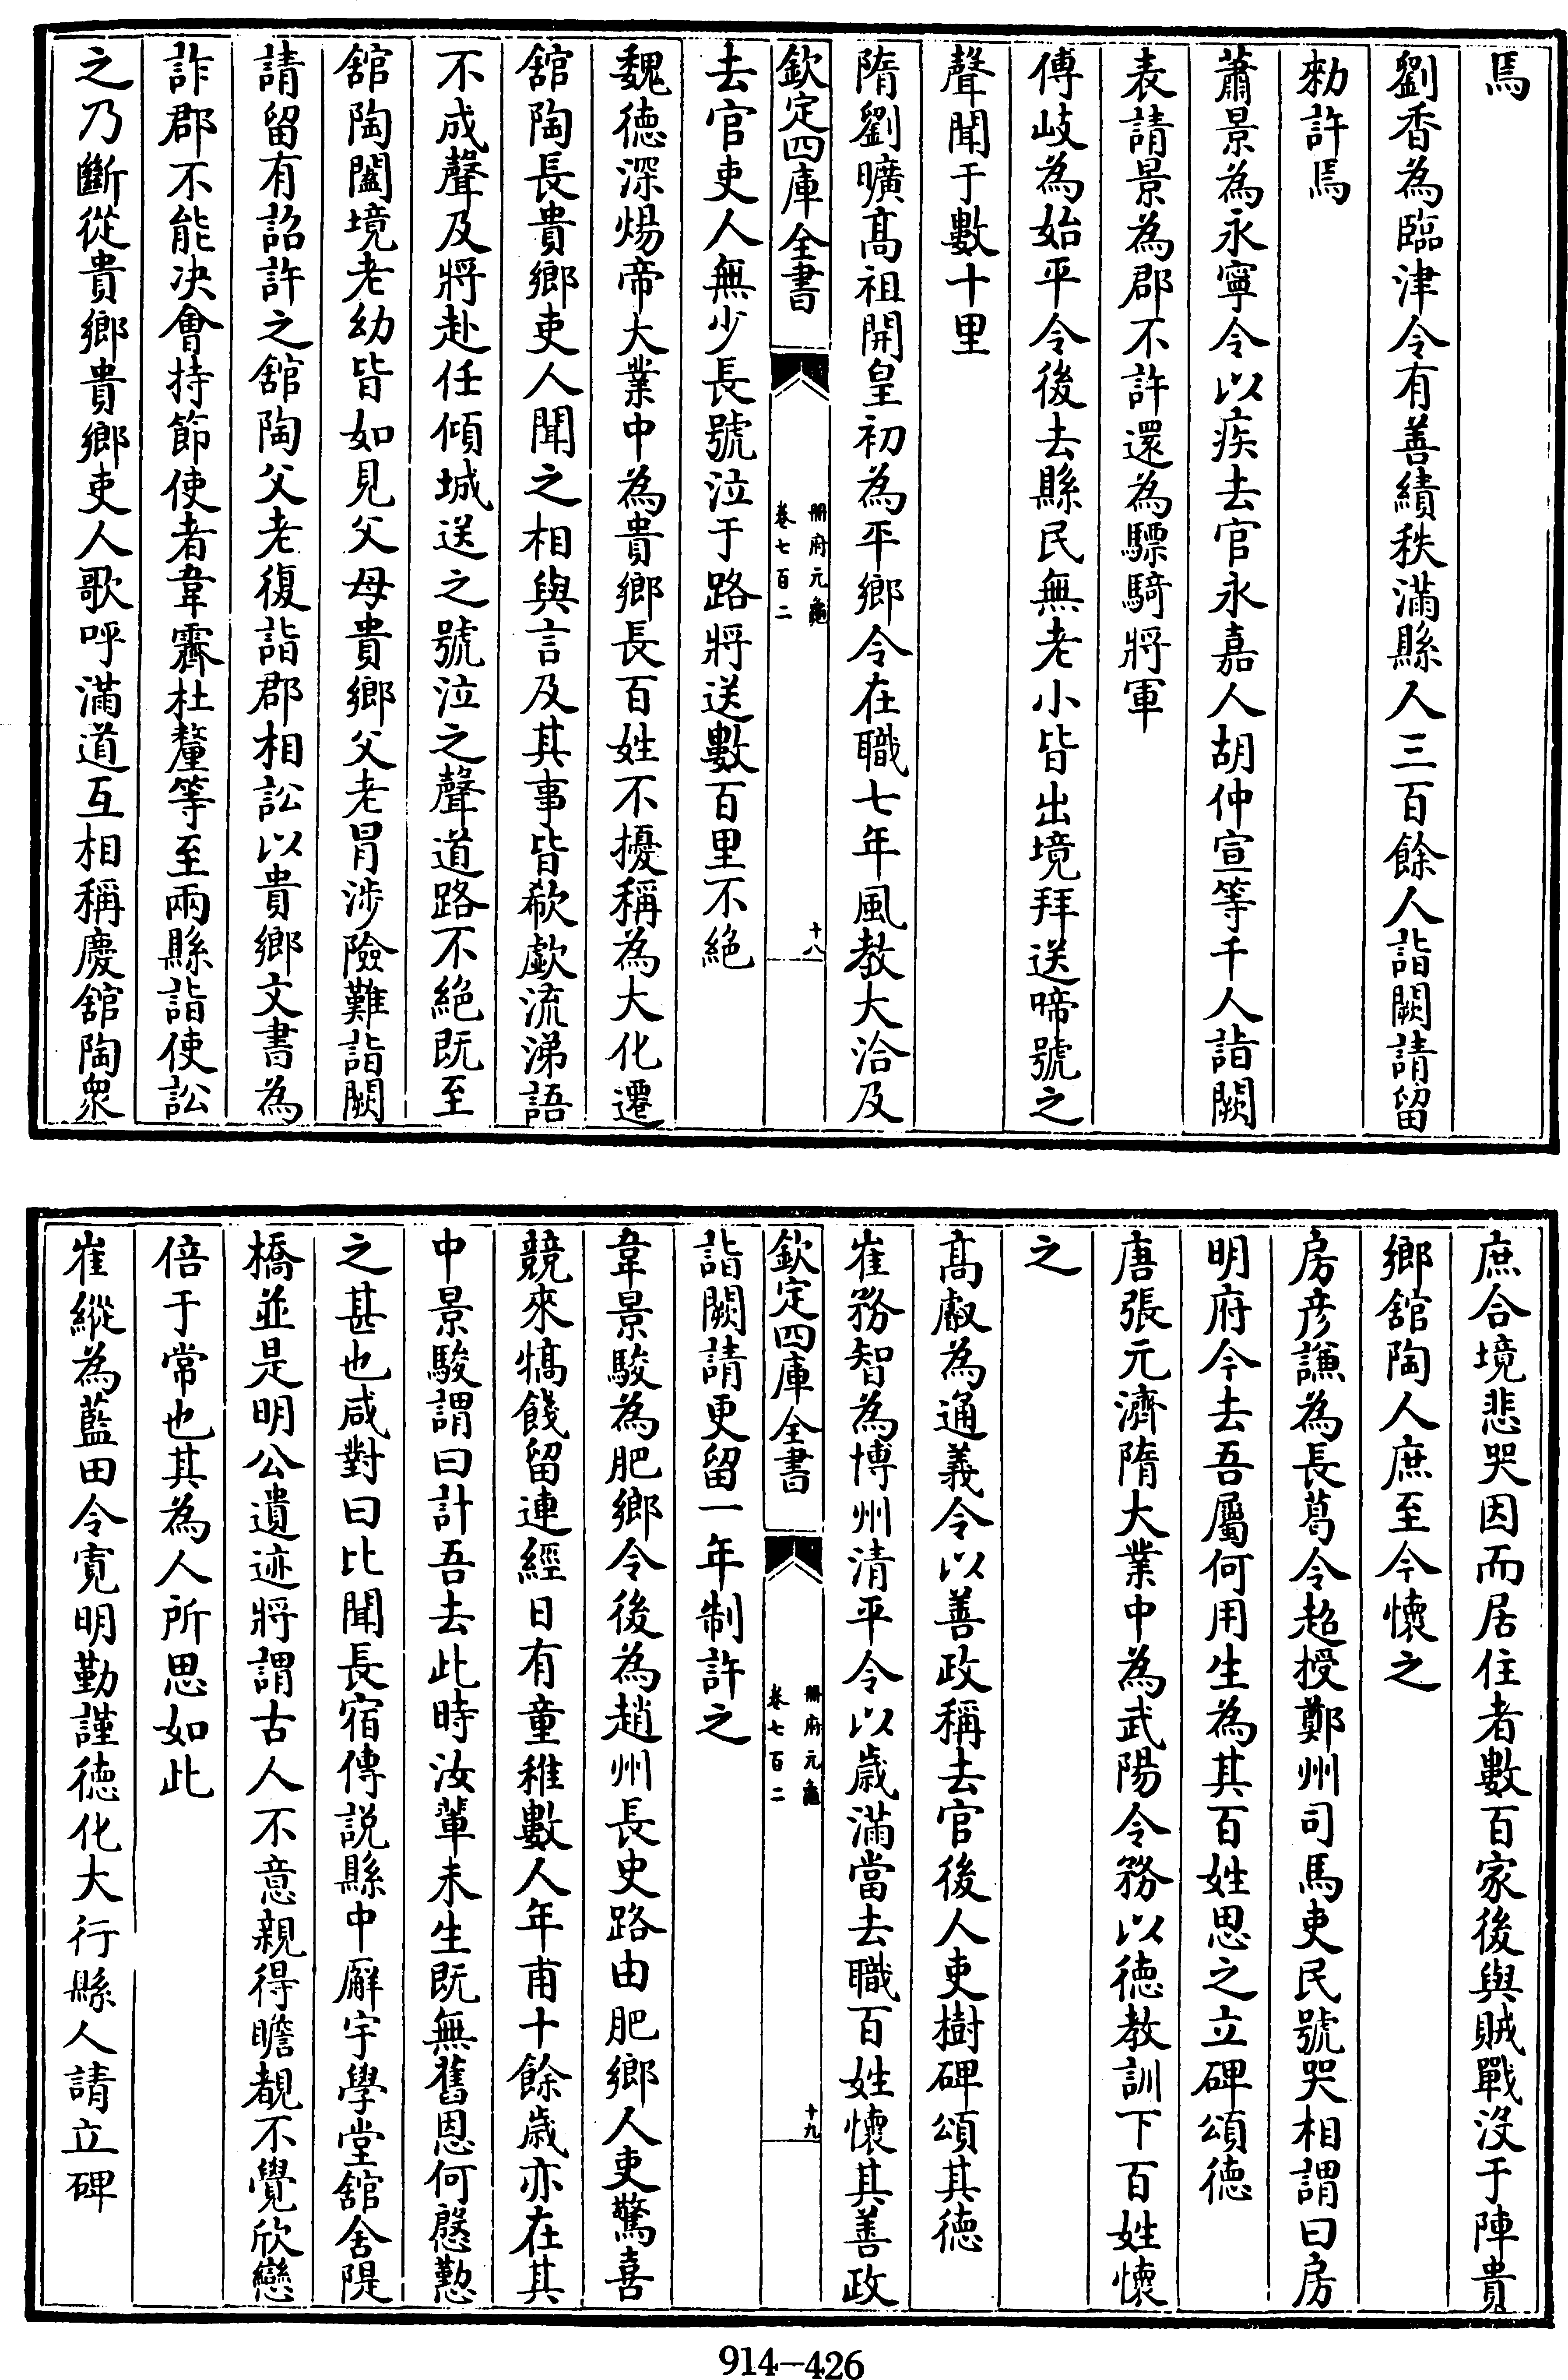 焉
劉香為臨津令有善績秩滿縣人三百餘人詣闕請留
勑許焉
蕭景為永寧令以疾去官永嘉人胡仲宣等千人詣闕
表請景為郡不許還為驃騎將軍
傅岐為始平令後去縣民無老小皆出境拜送啼號之
聲聞于數十里
隋劉曠髙祖開皇初為平鄉令在職七年風教大洽及
欽定四庫全書
冊府元龜
卷七百二
十八
去官吏人無少長號泣于路將送數百里不絕
魏徳深煬帝大業中為貴鄉長百姓不擾稱為大化遷
舘陶長貴鄉吏人聞之相與言及其事皆欷歔流涕語
不成聲及將赴任傾城送之號泣之聲道路不絕既至
舘陶闔境老幼皆如見父母貴鄉父老冒涉險難詣闕
請留有詔許之舘陶父老復詣郡相訟以貴鄉文書為
詐郡不能決會持節使者韋霽杜釐等至兩縣詣使訟
之乃斷從貴鄉貴鄉吏人歌呼滿道互相稱慶舘陶衆
庶合境悲哭因而居住者數百家後與賊戰沒于陣貴
鄉舘陶人庶至今懷之
房彦謙為長葛令超授鄭州司馬吏民號哭相謂曰房
明府今去吾屬何用生為其百姓思之立碑頌徳
唐張元濟隋大業中為武陽令務以徳教訓下百姓懷
之
髙叡為通義令以善政稱去官後人吏樹碑頌其徳
崔務智為博州清平令以歳滿當去職百姓懷其善政
欽定四庫全書
冊府元龜
卷七百二
十九
詣闕請更留一年制許之
韋景駿為肥鄉令後為趙州長史路由肥鄉人吏驚喜
競來犒餞留連經日有童稚數人年甫十餘歳亦在其
中景駿謂曰計吾去此時汝輩未生既無舊恩何慇懃
之甚也咸對曰比聞長宿傳説縣中廨宇學堂舘舍隄
橋並是明公遺迹將謂古人不意親得瞻覩不覺欣戀
倍于常也其為人所思如此
崔縱為藍田令寛明勤謹徳化大行縣人請立碑
914-426